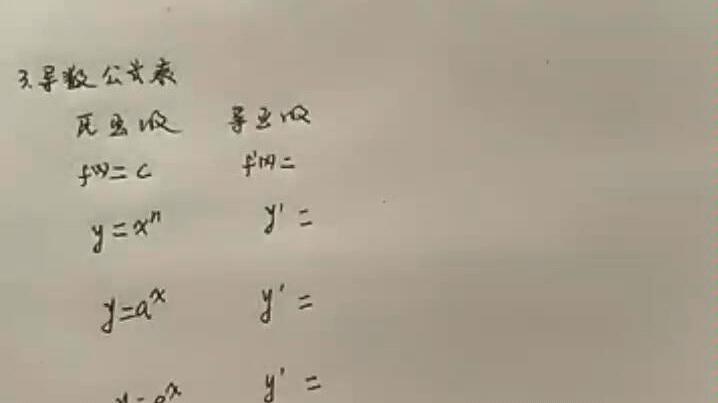 3.导数公式表
原函数 导函数
f(x)=C f'(x)=
y=xⁿ y'=
y=aˣ y'=
y=eˣ y'=